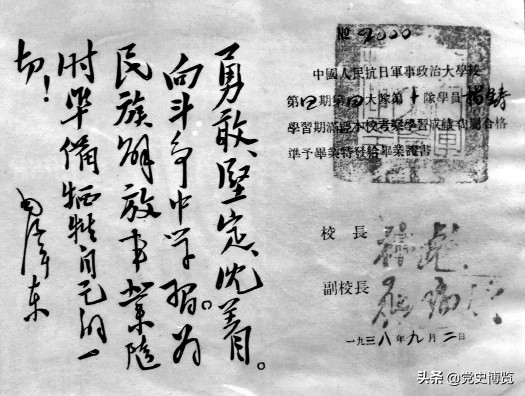 勇敢、堅定、沈着。
向斗争中学習。为
民族解放事業隨
时準備牺牲自己的一
切！
毛泽东
№ 2000
中國人民抗日軍事政治大學校
第四期第四大隊第十隊學員楊鑄
學習期滿經本校考驗學習成績屬合格
準予畢業特發給畢業證書
校長 林彪
副校長 羅瑞卿
一九三八年九月二日
头条 @党史博览